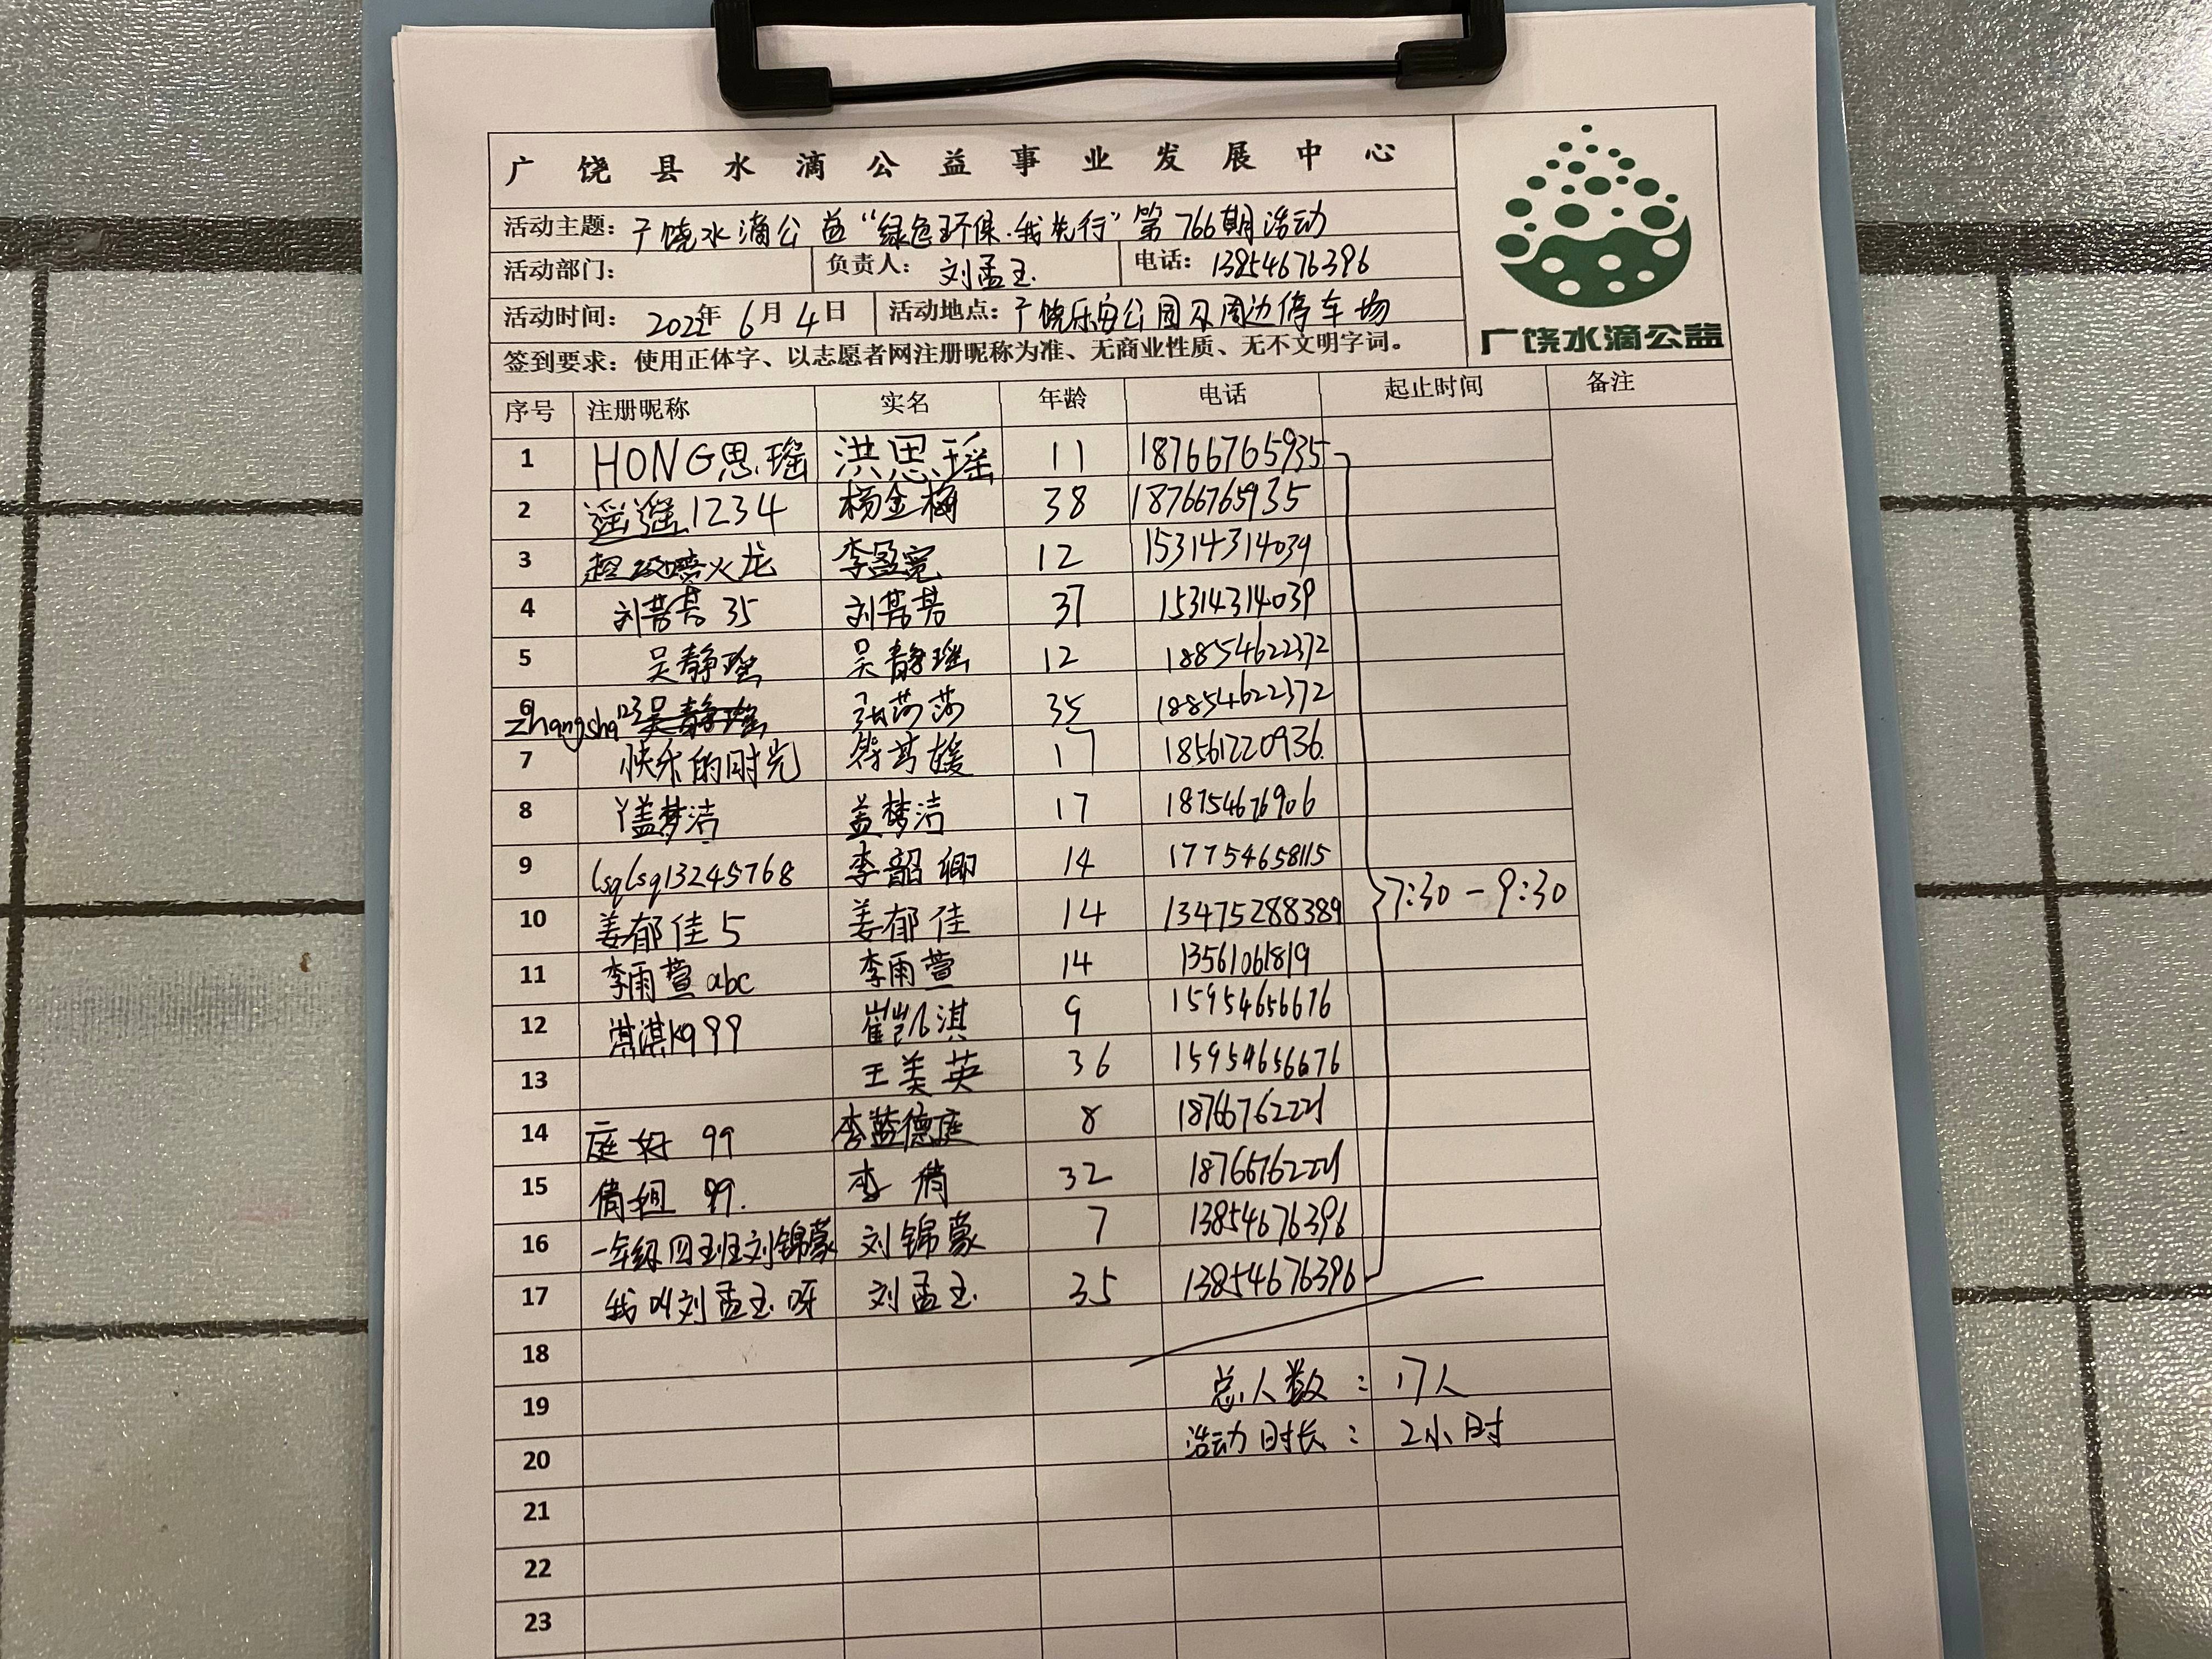 广饶县水滴公益事业发展中心
活动主题：广饶水滴公益“绿色环保·我先行”第766期活动
活动部门： 负责人：刘孟玉 电话：13854676396
活动时间：2022年6月4日 活动地点：广饶乐安公园及周边停车场
签到要求：使用正体字、以志愿者网注册昵称为准、无商业性质、无不文明字词。
广饶水滴公益
序号 注册昵称 实名 年龄 电话 起止时间 备注
1 HONG思瑶 洪思瑶 11 18766765935
2 遥遥1234 杨金梅 38 18766765935
3 超级喷火龙 李盈宽 12 15314314039
4 刘芸芸35 刘芸芸 37 15314314039
5 吴静瑶 吴静瑶 12 18854622372
6 zhangsha123 张莎莎 35 18854622372
7 快乐的时光 17 18561220936
8 丫盖梦洁 盖梦洁 17 18754676906
9 lsqlsq13245768 李韶卿 14 17754658115
10 姜郁佳5 姜郁佳 14 13475288389 7:30-9:30
11 李雨萱abc 李雨萱 14 13561061819
12 淇淇kq99 崔凯淇 9 15954656676
13 王美英 36 15954656676
14 庭好99 李蓝德庭 8 18766762221
15 倩姐99. 李倩 32 18766762221
16 一年级四班刘锦蒙 刘锦蒙 7 13854676396
17 我叫刘孟玉呀 刘孟玉 35 13854676396
18
19 总人数：17人
20 活动时长：2小时
21
22
23